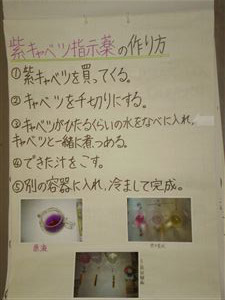 紫キャベツ指示薬の作り方
①紫キャベツを買ってくる。
②キャベツを千切りにする。
③キャベツがひたるくらいの水をなべに入れ、
キャベツと一緒に煮つめる。
④できた汁をこす。
⑤別の容器に入れ、冷まして完成。
原液